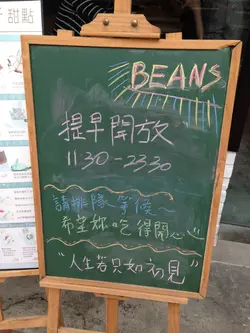 甜點
BEANS
提早開放
11:30-23:30
請排隊等候~
希望妳吃得開心
"人生若只如初見"